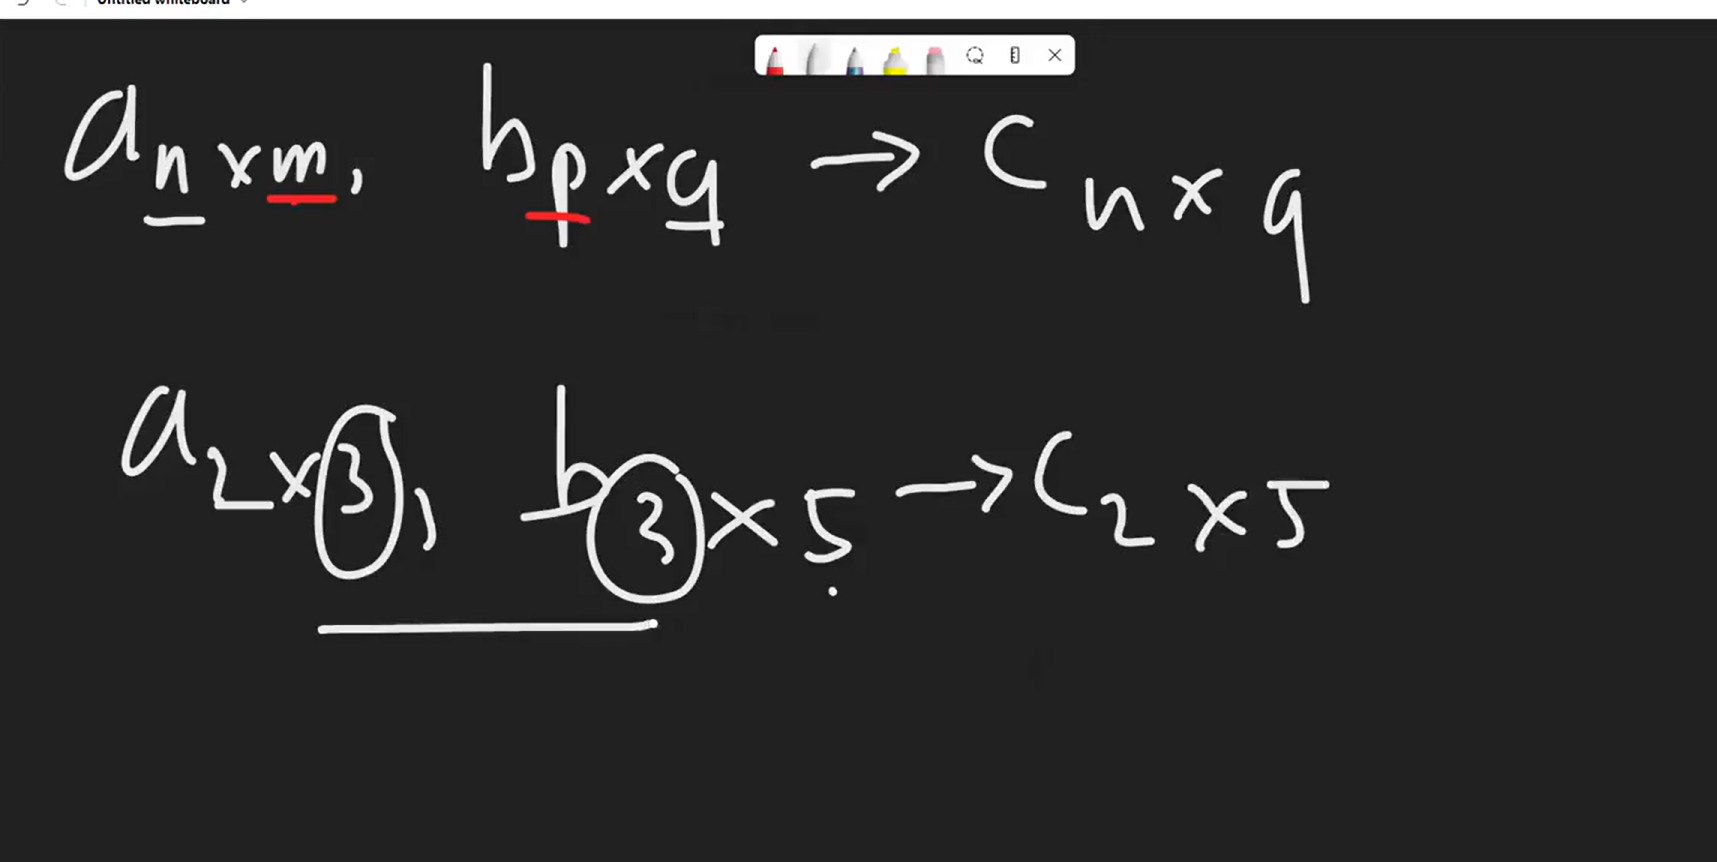 Untitled whiteboard
a n × m, b p × q → c n × q
a 2 × 3, b 3 × 5 → c 2 × 5